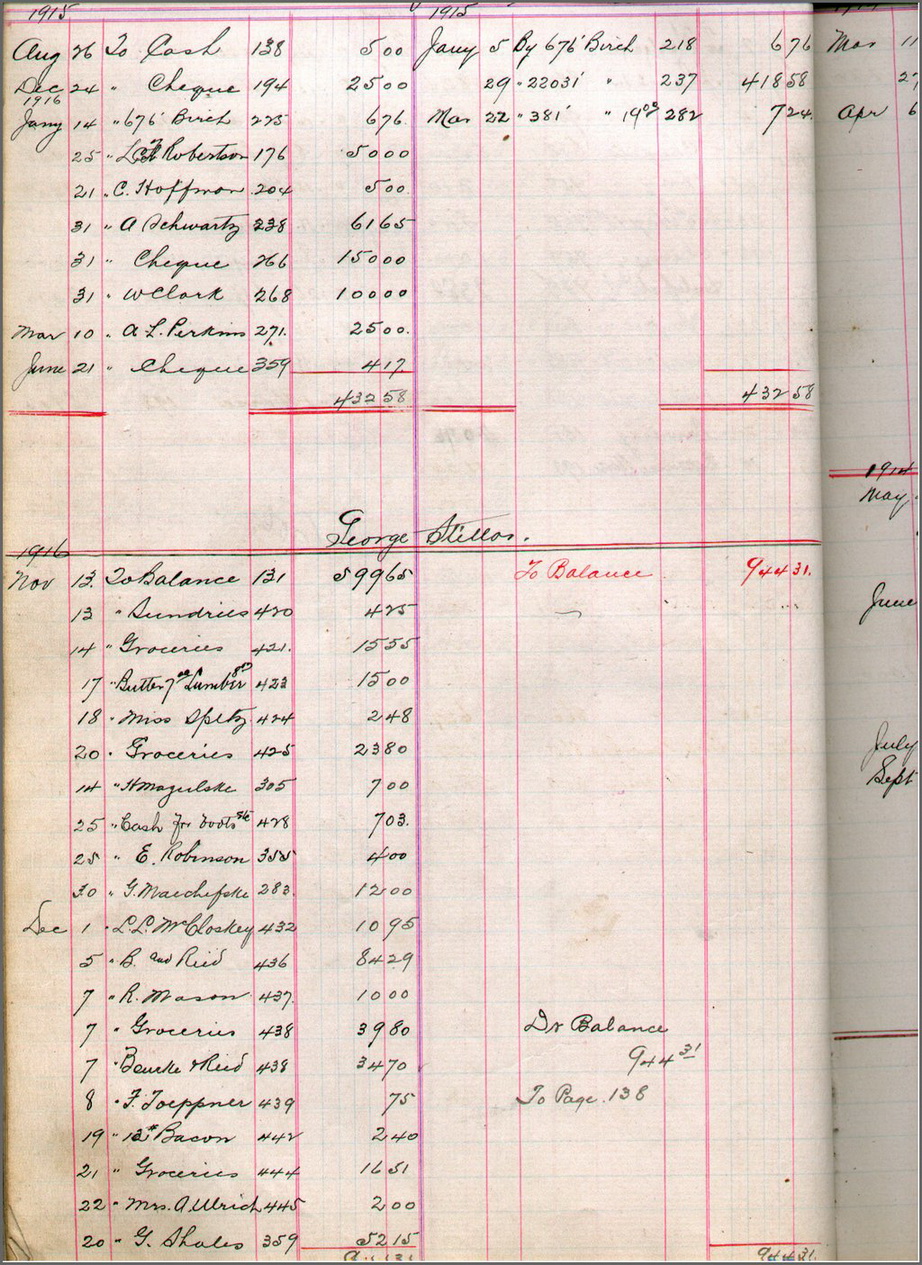 1915 1915
Aug 26 To Cash 138 5 00 Jany 5 By 676' Birch 218 6 76 Mar 11
Dec 24 " Cheque 194 25 00 29 " 22031' " 237 418 58
1916
Jany 14 " 676' Birch 225 6 76 Mar 22 " 381' " 19 00 282 7 24 Apr 6
25 " Robertson 176 50 00
21 " C. Hoffman 204 5 00
31 " A Schwartz 238 61 65
31 " Cheque 266 150 00
31 " W Clark 268 100 00
Mar 10 " A. L. Perkins 271 25 00
June 21 " Cheque 359 4 17
432 58 432 58
1914
May
George
1916
Nov 13 To Balance 131 599 65 To Balance 944 31
13 " Sundries 420 4 25 June
14 " Groceries 421 15 55
17 " Butter 7 00 Lumber 423 15 00
18 " Miss Speltz 424 2 48
20 " Groceries 425 23 80 July
14 " H Mazulske 305 7 00 Sept
25 " Cash for boots 428 7 03
25 " E. Robinson 355 4 00
30 " G. Maichefske 283 12 00
Dec 1 " L. L. McCloskey 432 10 95
5 " B. and Reid 436 84 29
7 " R. Mason 437 10 00
7 " Groceries 438 39 80 Dr Balance
944 31
7 " & Reid 438 34 70
8 " F. Toeppner 439 75 To Page 138
19 " 12# Bacon 442 2 40
21 " Groceries 444 16 51
22 " Mrs. A. Ulrich 445 2 00
20 " G. Shales 359 52 15
944 31